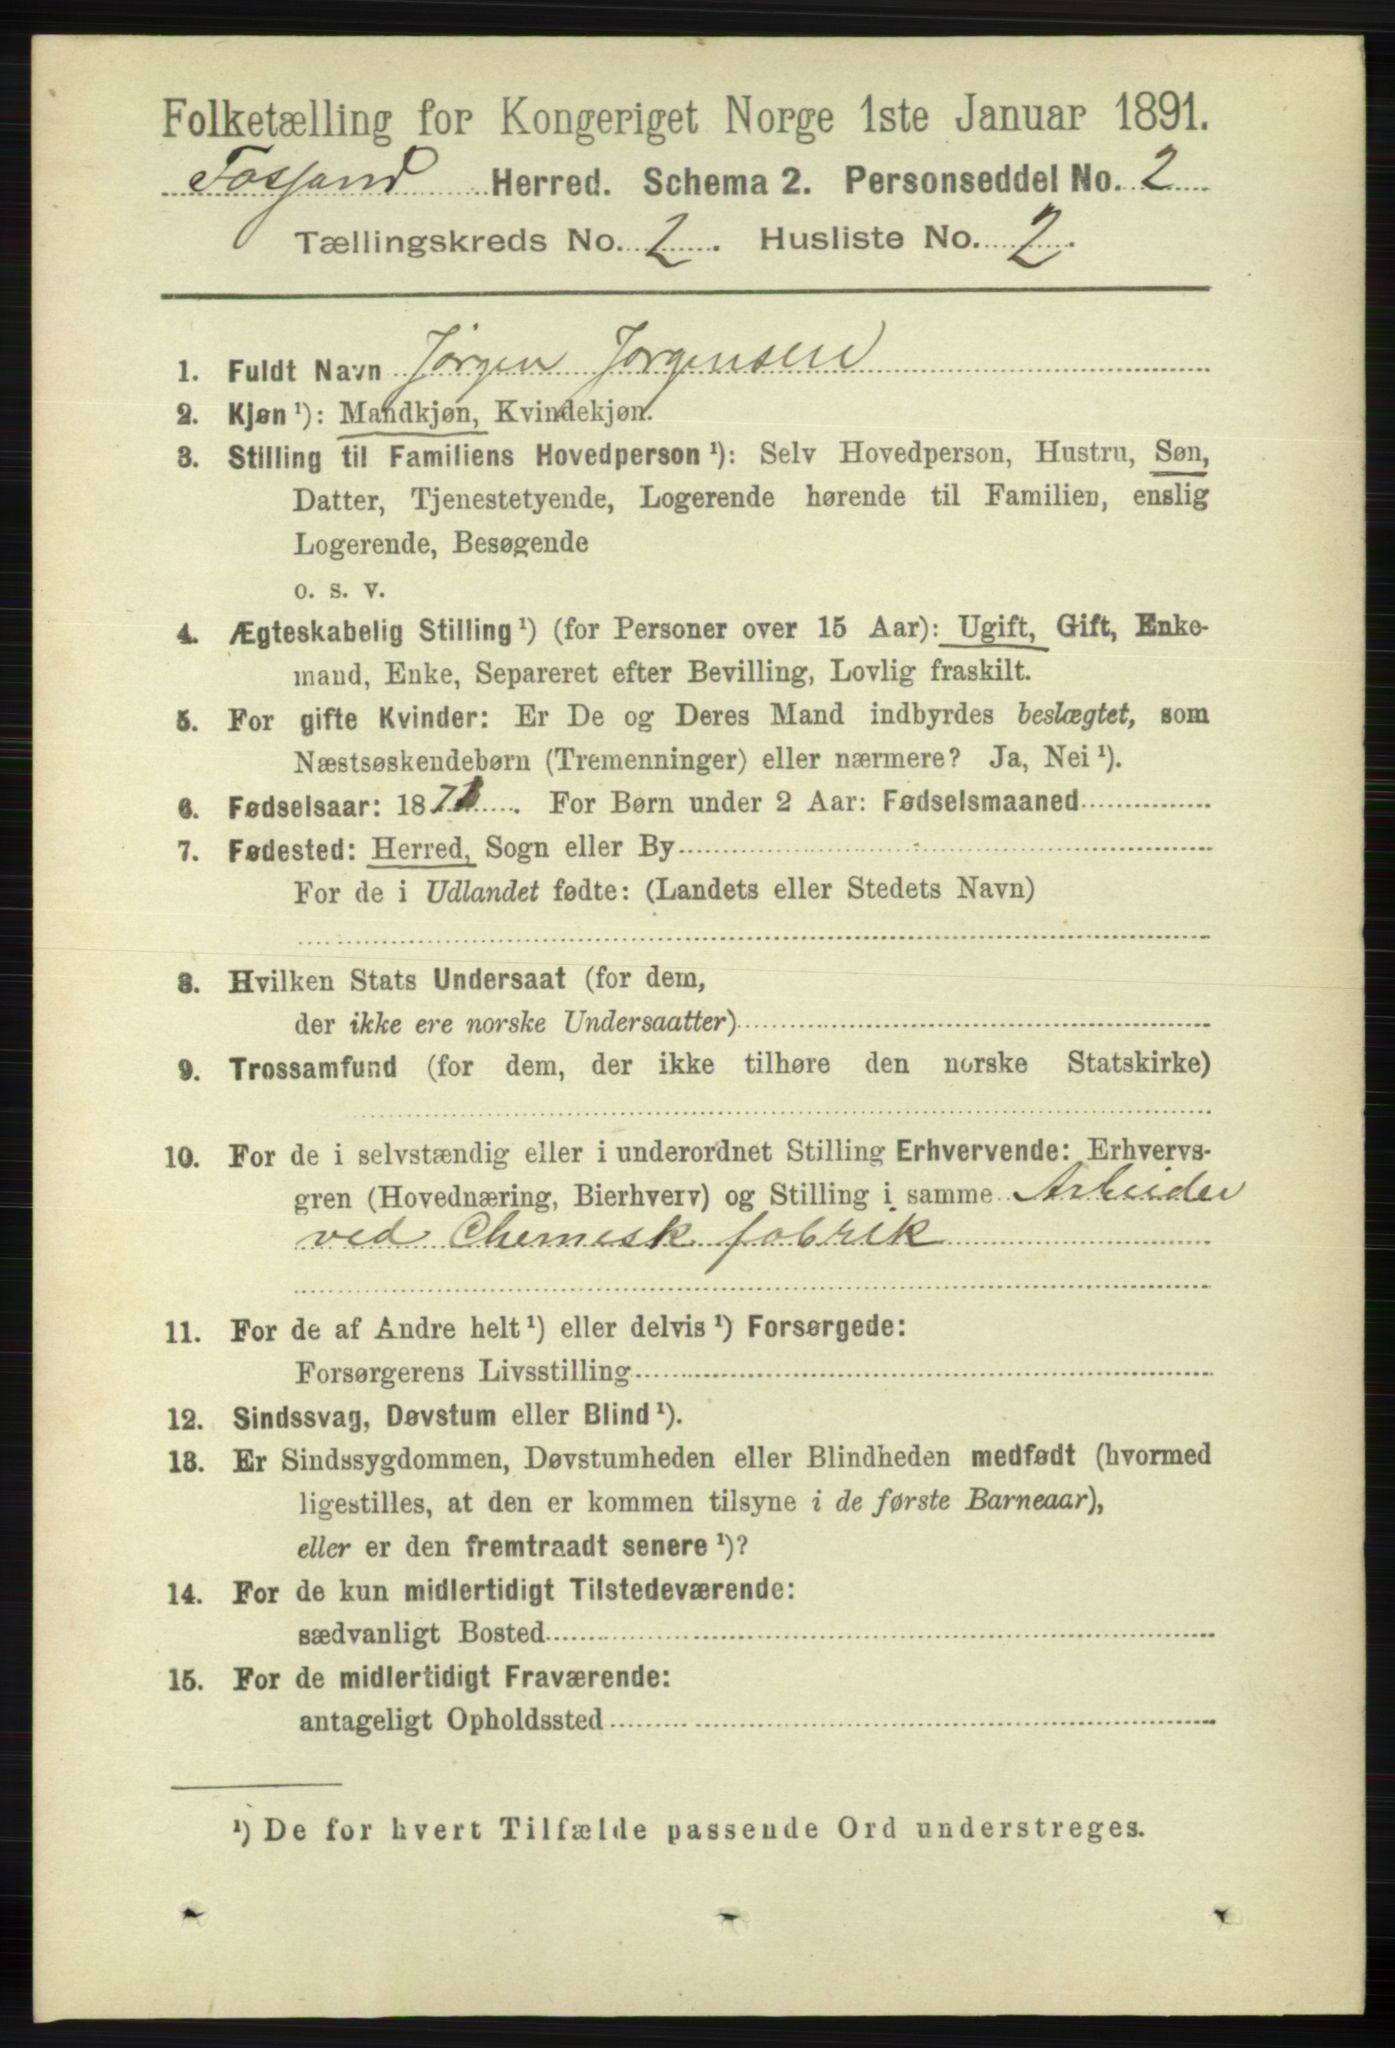 Folketælling for Kongeriget Norge 1ste Januar 1891.
Fossand Herred. Schema 2. Personseddel No. 2
Tællingskreds No. 2. Husliste No. 2.
1. Fuldt Navn Jörgen Jorgensen
2. Kjøn ¹): Mandkjøn, Kvindekjøn.
3. Stilling til Familiens Hovedperson ¹): Selv Hovedperson, Hustru, Søn,
Datter, Tjenestetyende, Logerende hørende til Familien, enslig
Logerende, Besøgende
o. s. v.
4. Ægteskabelig Stilling ¹) (for Personer over 15 Aar): Ugift, Gift, Enke-
mand, Enke, Separeret efter Bevilling, Lovlig fraskilt.
5. For gifte Kvinder: Er De og Deres Mand indbyrdes beslægtet, som
Næstsøskendebørn (Tremenninger) eller nærmere? Ja, Nei ¹).
6. Fødselsaar: 1871. For Børn under 2 Aar: Fødselsmaaned
7. Fødested: Herred, Sogn eller By
For de i Udlandet fødte: (Landets eller Stedets Navn)
8. Hvilken Stats Undersaat (for dem,
der ikke ere norske Undersaatter)
9. Trossamfund (for dem, der ikke tilhøre den norske Statskirke)
10. For de i selvstændig eller i underordnet Stilling Erhvervende: Erhvervs-
gren (Hovednæring, Bierhverv) og Stilling i samme Arbeider
ved Chemisk fabrik
11. For de af Andre helt ¹) eller delvis ¹) Forsørgede:
Forsørgerens Livsstilling
12. Sindssvag, Døvstum eller Blind ¹).
13. Er Sindssygdommen, Døvstumheden eller Blindheden medfødt (hvormed
ligestilles, at den er kommen tilsyne i de første Barneaar),
eller er den fremtraadt senere ¹)?
14. For de kun midlertidigt Tilstedeværende:
sædvanligt Bosted
15. For de midlertidigt Fraværende:
antageligt Opholdssted
¹) De for hvert Tilfælde passende Ord understreges.